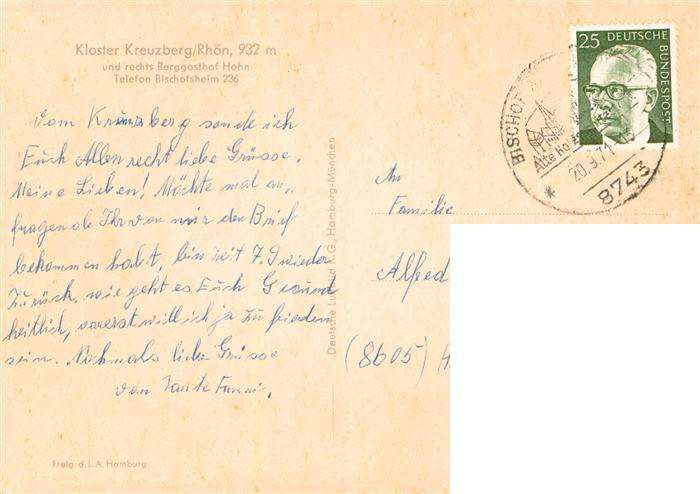 Kloster Kreuzberg/Rhön, 932 m
und rechts Berggasthof Hohn
Telefon Bischofsheim 236
Vom Kreuzberg sende ich
Euch Allen recht liebe Grüsse.
Meine Lieben! Möchte mal an„
fragen ob Ihr von mir den Brief
bekommen habt, bin seit 7.9 wieder
Zurück, wie geht es Euch Gesund
heitlich, vorerst will ich ja zufrieden
sein. Nochmals liebe Grüsse
von Tante Fanni,
Freig. d. L.A. Hamburg
Deutsche Hamburg-München
25 DEUTSCHE
BUNDESPOST
BISCHOF
Alte Ho
20.9.71
8743
An
Familie
Alfred
(8605)